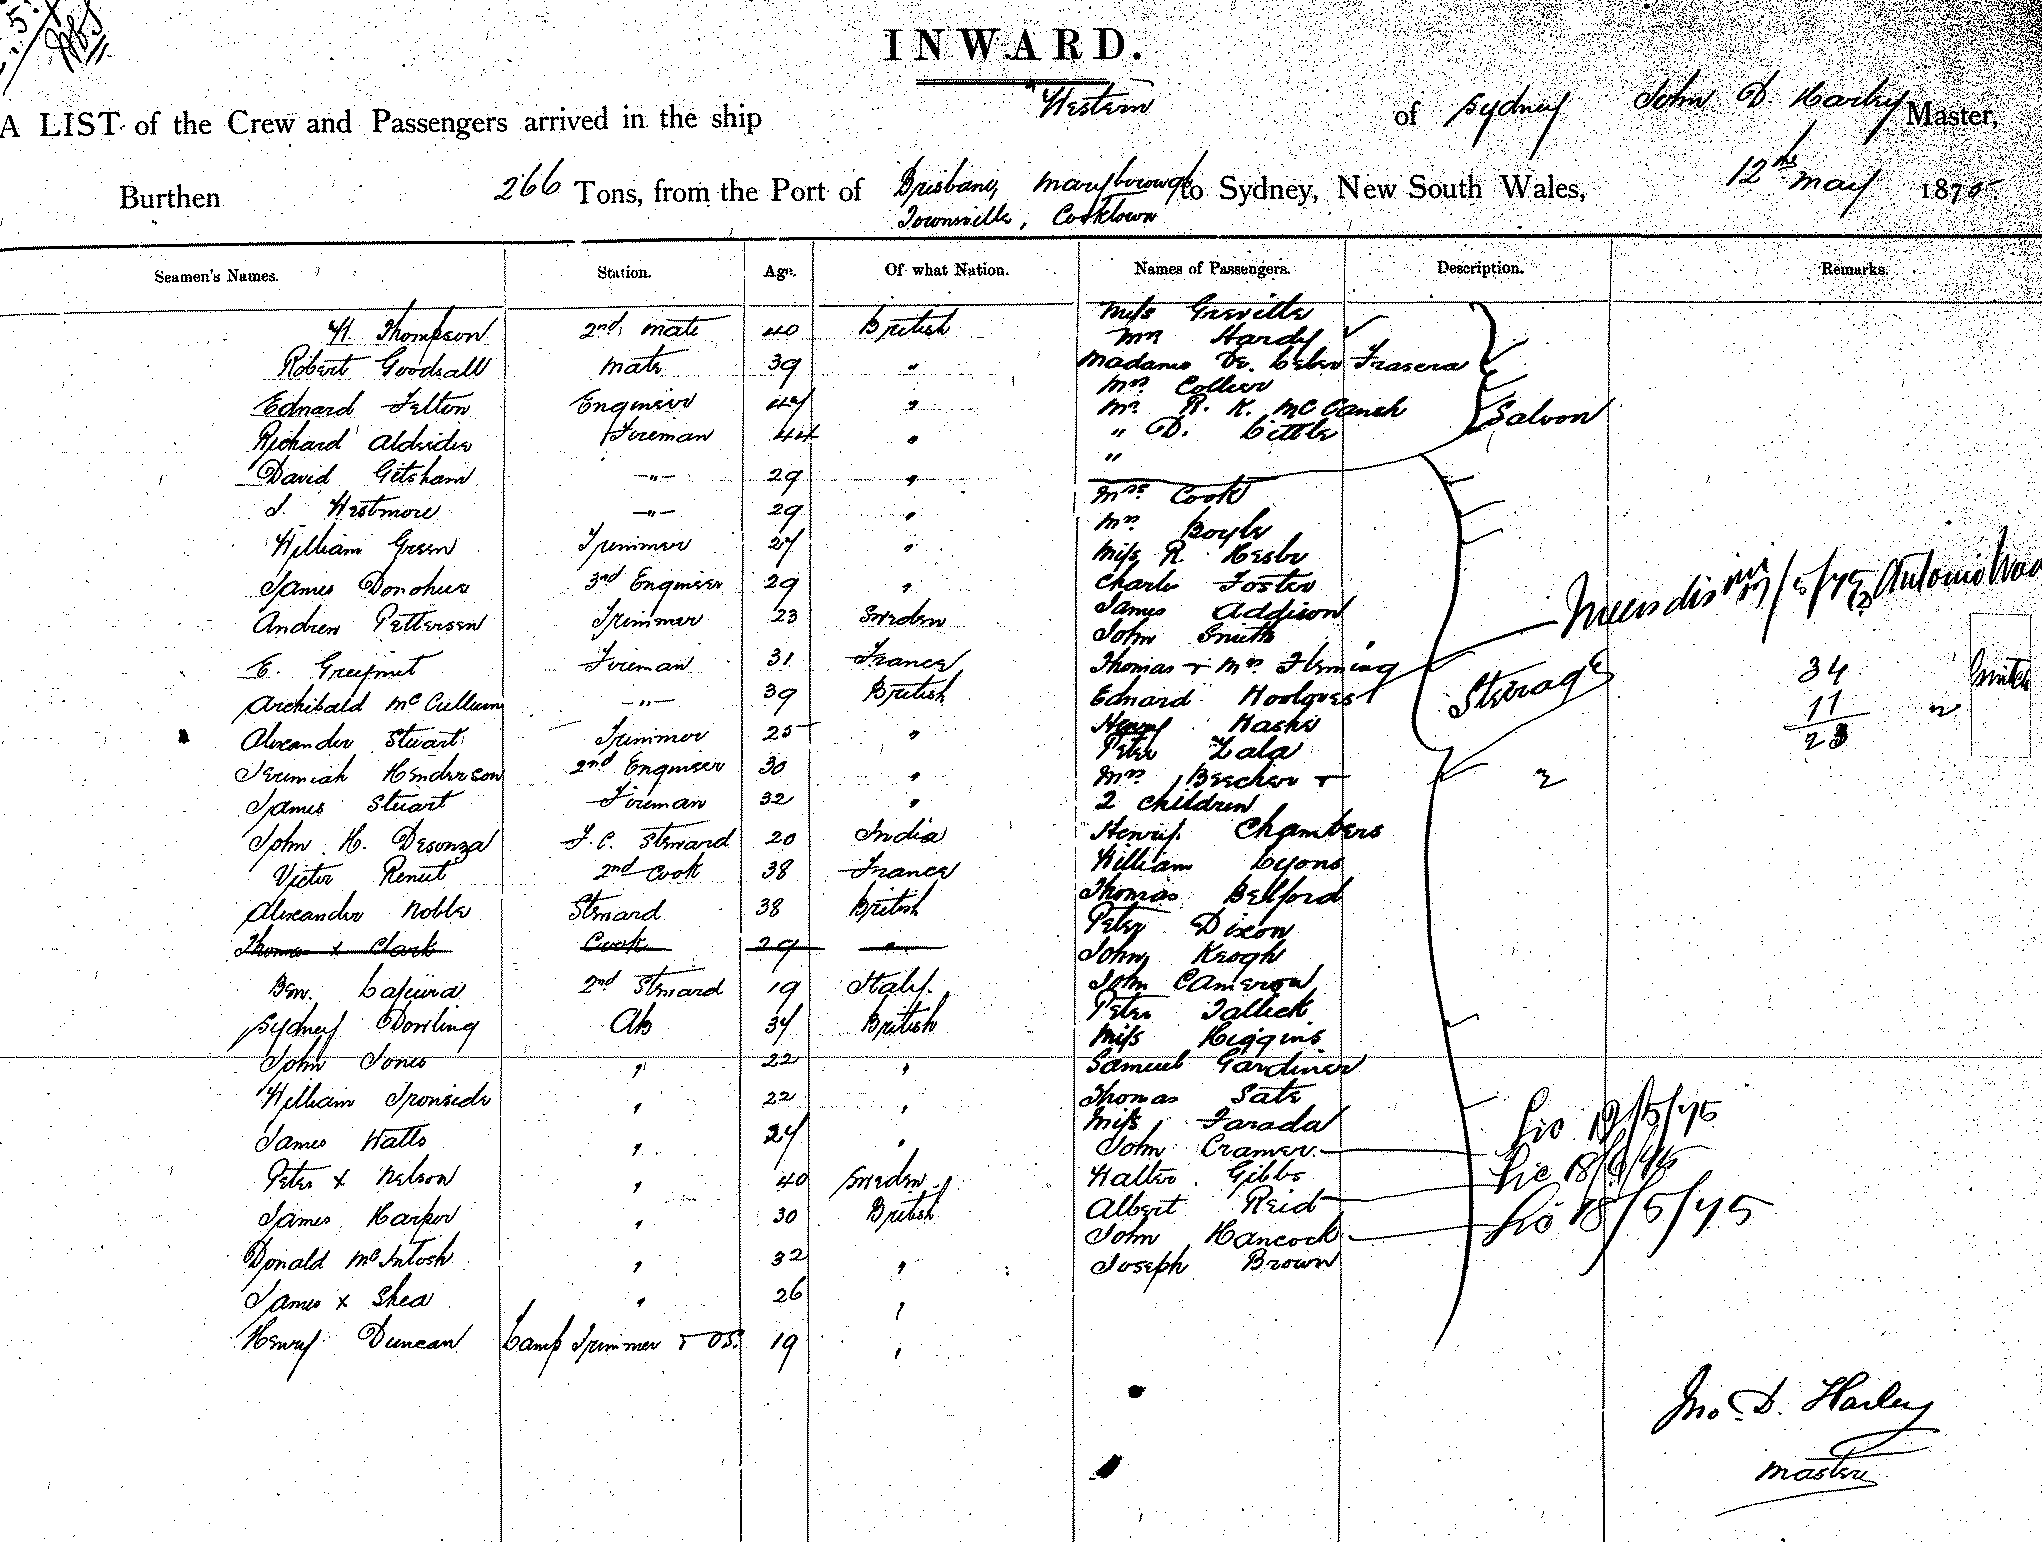 INWARD.
A LIST of the Crew and Passengers arrived in the ship "Western of Sydney John D. Harley Master,
Burthen 266 Tons, from the Port of Brisbane, Maryborough to Sydney, New South Wales, 12th May 1875
Townsville, Cooktown
Seamen's Names. Station. Age. Of what Nation. Names of Passengers. Description. Remarks.
Miss Greville
H. Thompson 2nd Mate 40 British
Mrs Hardy
Robert Goodsall Mate 39 "
Madame De Frasera
Mrs Collier
Edward Felton Engineer 47 "
Mr R. K. McCaush Saloon
Richard Aldridge Fireman 44 "
" D. Little
"
David Getsham " 29 "
Mrs Cook
J. Westmore " 29 "
Mrs Boyle
William Green Trimmer 27 "
Miss R. Keshe
James Donohue 3rd Engineer 29 "
Charle Foster
James Addison
Andrew Pettersen Trimmer 23 Sweden
John Smith
E. Fireman 31 France
Thomas + Mrs Fleming
34
Archibald McCullum " 39 British
Edward Steerage
11
Alexander Stuart Trimmer 25 "
Henry
23
Peter Zala
Jeremiah Henderson 2nd Engineer 30 "
Mrs Beecher +
2 children 2
James Stuart Fireman 32 "
Henry Chambers
John H. Desouza F.C. Steward 20 India
William Lyons
Victor Renut 2nd Cook 38 France
Thomas Belford
Alexander Noble Steward 38 British
Peter Dixon
Thomas x Clark Cook 29 "
John Keogh
John Cameron
Ben. 2nd Steward 19 Italy.
Peter Tallick
Sydney Dowling AB 34 British
Miss Higgins
John Jones " 22 "
Samuel Gardiner
William Ironside " 22 "
Thomas Sate
Miss Farada
James Watts " 24 "
John Cramer 18/5/75
Peter x Nelson " 40 Sweden
Walter Gibbs
Albert Reid
James Harper " 30 British
John Hancock 18/5/75
Donald McIntosh " 32 "
Joseph Brown
James x Shea " 26 "
Henry Duncan Lamp Trimmer + OS. 19 "
Jno. D. Harley
Master